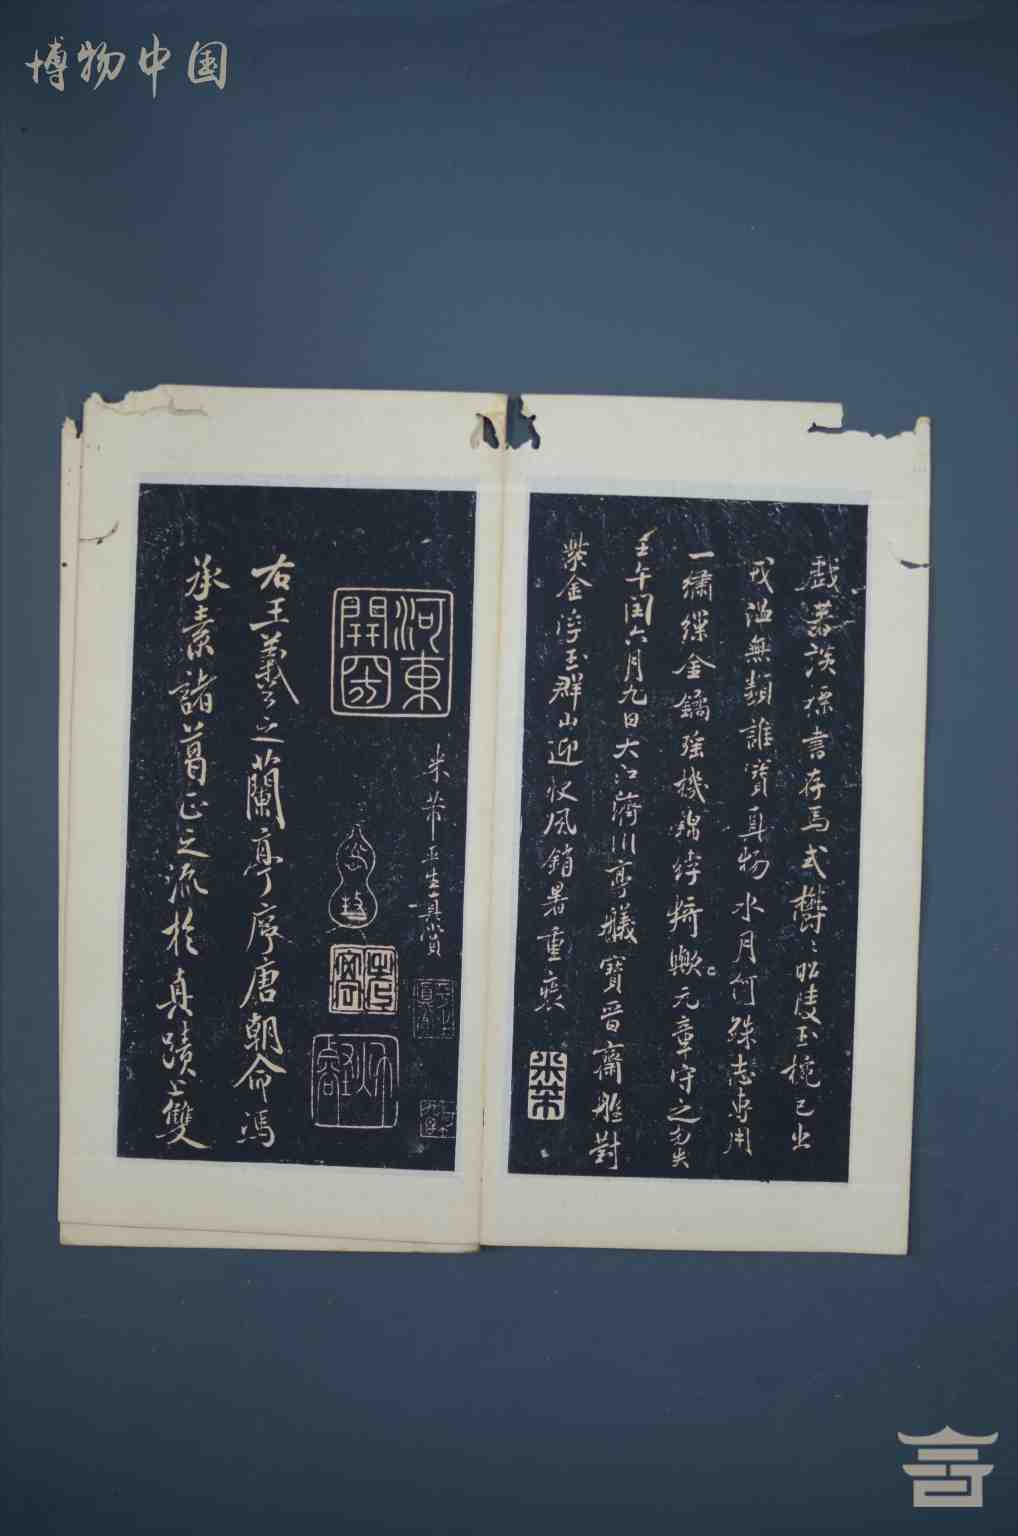 博物中国
戲著談標書存馬式欝〻昭陵玉椀已出
戎温無類誰寶真物水月何殊志専用
一繡繅金鐍瑤機錦綷猗歟元章守之勿失
壬午閏六月九日大江濟川亭艤寶晉齋艎對
紫金浮玉群山迎快風銷暑重裝
米芾
米芾平生真賞
河東
開國
右王羲之蘭亭序唐朝命馮
承素諸葛正之流於真蹟上雙